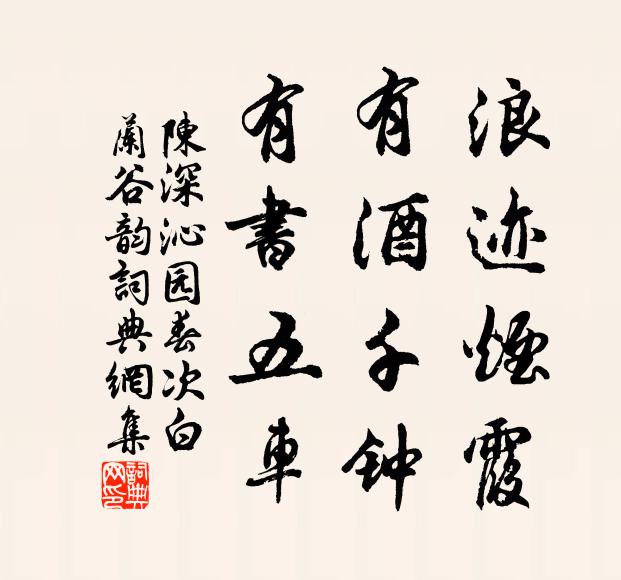 浪迹煙霞
有酒千钟
有書五車
陳深沁园春次白
蘭谷韵詞典網集
詞典网印